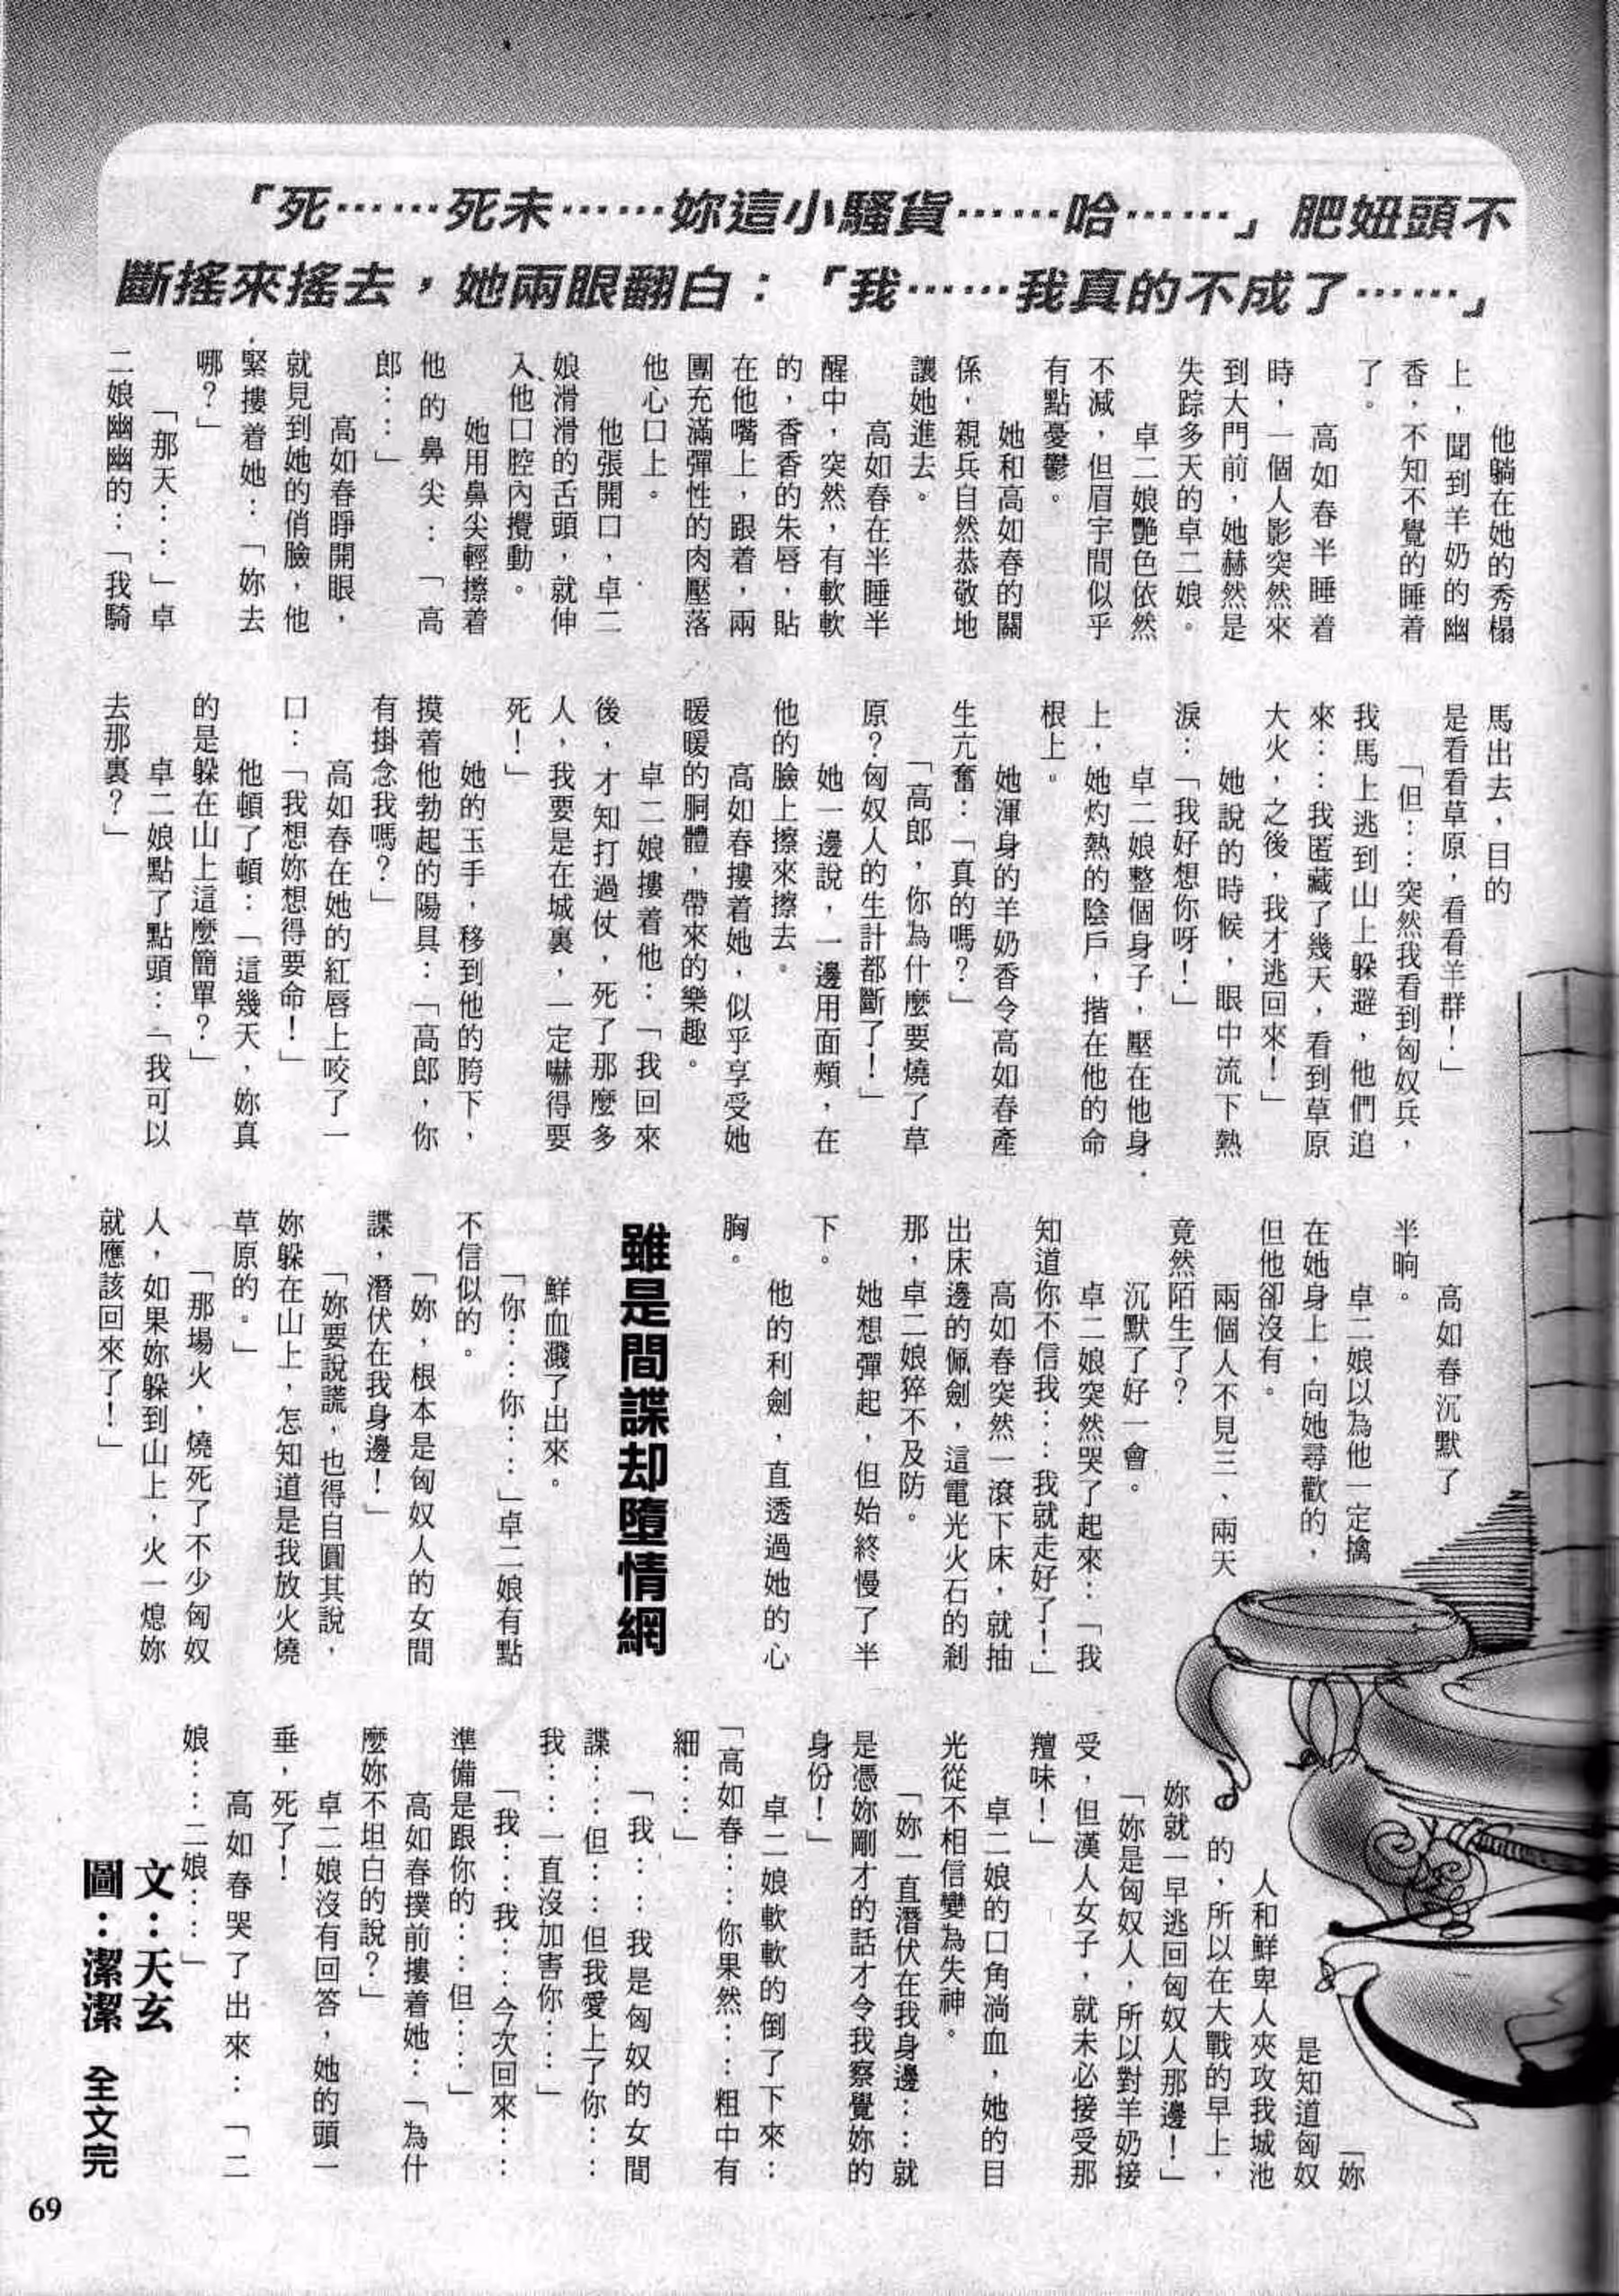 「死……死未……妳這小騷貨……哈……」肥妞頭不
斷搖來搖去，她兩眼翻白：「我……我真的不成了……」
他躺在她的秀榻
上，聞到羊奶的幽
香，不知不覺的睡着
了。
高如春半睡着
時，一個人影突然來
到大門前，她赫然是
失踪多天的卓二娘。
卓二娘艷色依然
不減，但眉宇間似乎
有點憂鬱。
她和高如春的關
係，親兵自然恭敬地
讓她進去。
高如春在半睡半
醒中，突然，有軟軟
的，香香的朱唇，貼
在他嘴上，跟着，兩
團充滿彈性的肉壓落
他心口上。
他張開口，卓二
娘滑滑的舌頭，就伸
入他口腔內攪動。
她用鼻尖輕擦着
他的鼻尖：「高
郎……」
高如春睜開眼，
就見到她的俏臉，他
緊摟着她：「妳去
哪？」
「那天……」卓
二娘幽幽的：「我騎
馬出去，目的
是看看草原，看看羊群！」
「但……突然我看到匈奴兵，
我馬上逃到山上躲避，他們追
來……我匿藏了幾天，看到草原
大火，之後，我才逃回來！」
她說的時候，眼中流下熱
淚：「我好想你呀！」
卓二娘整個身子，壓在他身
上，她灼熱的陰戶，揩在他的命
根上。
她渾身的羊奶香令高如春產
生亢奮：「真的嗎？」
「高郎，你為什麼要燒了草
原？匈奴人的生計都斷了！」
她一邊說，一邊用面頰，在
他的臉上擦來擦去。
高如春摟着她，似乎享受她
暖暖的胴體，帶來的樂趣。
卓二娘摟着他：「我回來
後，才知打過仗，死了那麼多
人，我要是在城裏，一定嚇得要
死！」
她的玉手，移到他的胯下，
摸着他勃起的陽具：「高郎，你
有掛念我嗎？」
高如春在她的紅唇上咬了一
口：「我想妳想得要命！」
他頓了頓：「這幾天，妳真
的是躲在山上這麼簡單？」
卓二娘點了點頭：「我可以
去那裏？」
高如春沉默了
半晌。
卓二娘以為他一定擒
在她身上，向她尋歡的，
但他卻沒有。
兩個人不見三、兩天
竟然陌生了？
沉默了好一會。
卓二娘突然哭了起來：「我
知道你不信我……我就走好了！」
高如春突然一滾下床，就抽
出床邊的佩劍，這電光火石的剎
那，卓二娘猝不及防。
她想彈起，但始終慢了半
下。
他的利劍，直透過她的心
胸。
雖是間諜却墮情網
鮮血濺了出來。
「你……你……」卓二娘有點
不信似的。
「妳，根本是匈奴人的女間
諜，潛伏在我身邊！」
「妳要說謊，也得自圓其說，
妳躲在山上，怎知道是我放火燒
草原的。」
「那場火，燒死了不少匈奴
人，如果妳躲到山上，火一熄妳
就應該回來了！」
「妳
是知道匈奴
人和鮮卑人夾攻我城池
的，所以在大戰的早上，
妳就一早逃回匈奴人那邊！」
「妳是匈奴人，所以對羊奶接
受，但漢人女子，就未必接受那
羶味！」
卓二娘的口角淌血，她的目
光從不相信變為失神。
「妳一直潛伏在我身邊……就
是憑妳剛才的話才令我察覺妳的
身份！」
卓二娘軟軟的倒了下來：
「高如春……你果然……粗中有
細……」
「我……我是匈奴的女間
諜……但……但我愛上了你……
我……一直沒加害你……」
「我……我……今次回來……
準備是跟你的……但……」
高如春撲前摟着她：「為什
麼妳不坦白的說？」
卓二娘沒有回答，她的頭一
垂，死了！
高如春哭了出來：「二
娘……二娘……」
文：天玄
圖：潔潔 全文完
69